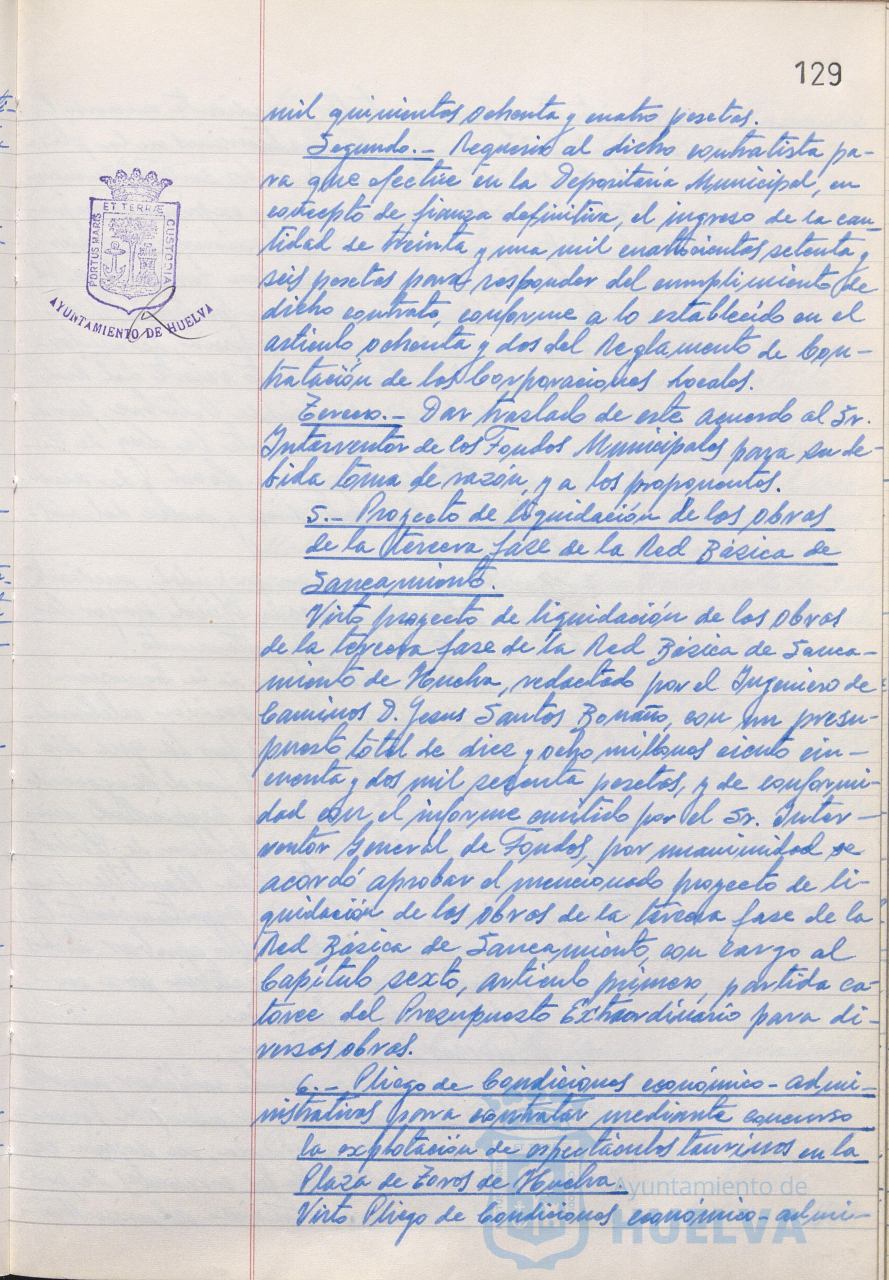 129
mil quinientas ochenta y cuatro pesetas.
Segundo.- Requerir al dicho contratista pa-
ra que efectúe en la Depositaría Municipal, en
concepto de fianza definitiva, el ingreso de la can-
tidad de treinta y una mil cuatrocientas setenta y
seis pesetas para responder del cumplimiento de
dicho contrato, conforme a lo establecido en el
artículo ochenta y dos del Reglamento de Con-
tratación de las Corporaciones Locales.
Tercero.- Dar traslado de este acuerdo al Sr.
Interventor de los Fondos Municipales para su de-
bida toma de razón, y a los proponentes.
5.- Proyecto de liquidación de las obras
de la tercera fase de la Red Básica de
Saneamiento.
Visto proyecto de liquidación de las obras
de la tercera fase de la Red Básica de Sanea-
miento de Huelva, redactado por el Ingeniero de
Caminos D. Jesus Santos Bonaño, con un presu-
puesto total de diez y ocho millones ciento cin-
cuenta y dos mil setenta pesetas, y de conformi-
dad con el informe emitido por el Sr. Inter-
ventor General de Fondos, por unanimidad se
acordó aprobar el mencionado proyecto de li-
quidación de las obras de la tercera fase de la
Red Básica de Saneamiento, con cargo al
Capítulo sexto, artículo primero, partida ca-
torce del Presupuesto Extraordinario para di-
versas obras.
6.- Pliego de Condiciones económico-admi-
nistrativas para contratar mediante concurso
la explotación de espectáculos taurinos en la
Plaza de Toros de Huelva.
Visto Pliego de Condiciones económico-admi-
PORTUS MARIS ET TERRAE CUSTODIA
AYUNTAMIENTO DE HUELVA
Ayuntamiento de
HUELVA